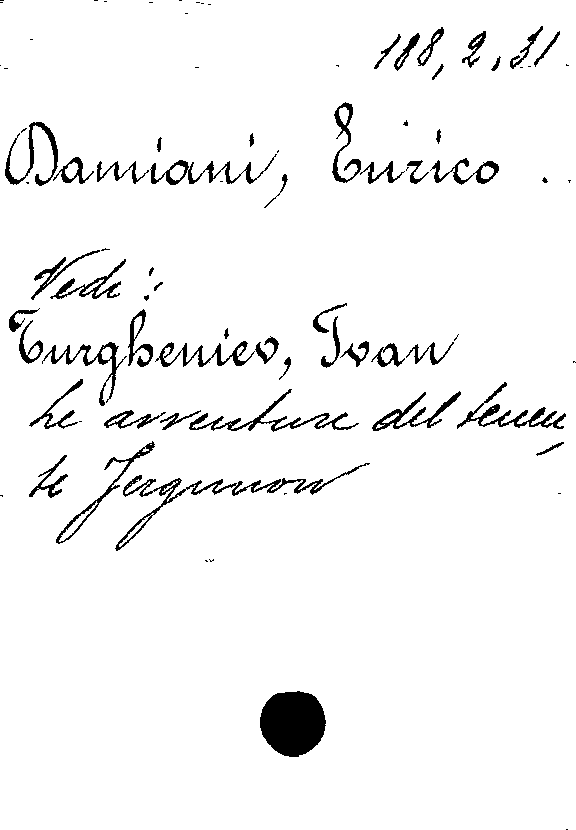 188, 2, 31
Damiani, Enrico.
Vedi:
Turgheniev, Ivan
Le avventure del tenen,
te Jergunow